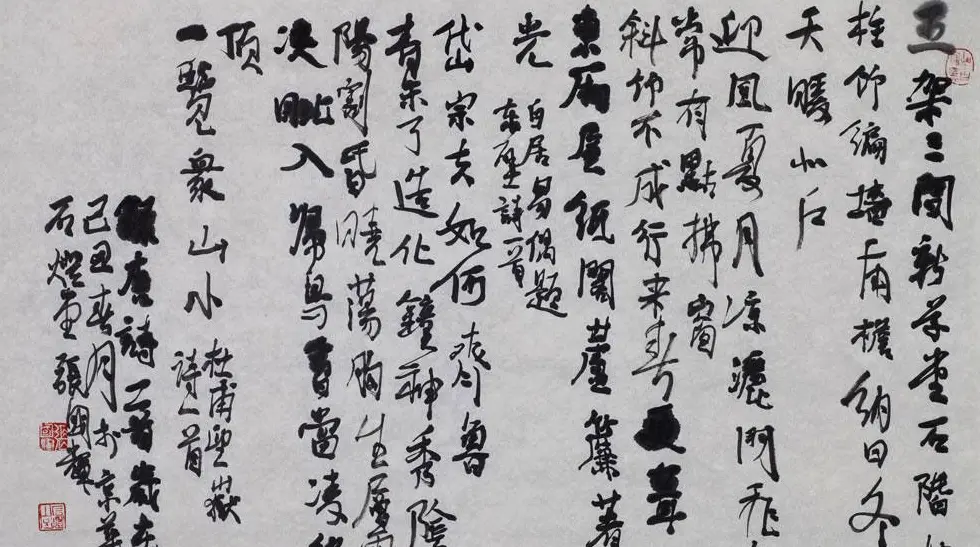 五架三間新草堂石階
柱竹編墻南檐納日冬
天暖北户
迎風夏月涼灑砌飛
常有點拂窗
斜竹不成行来春更葺
東廂屋紙閣蘆簾著
光
白居易偶題
東壁詩一首
岱宗夫如何齊魯
青未了造化鐘神秀陰
陽割昏曉蕩胸生層
决眦入歸鳥會當凌
頂
一覽衆山小
杜甫望嶽
詩一首
錄唐詩二首歲在
己丑春月於京華
石燈室張國